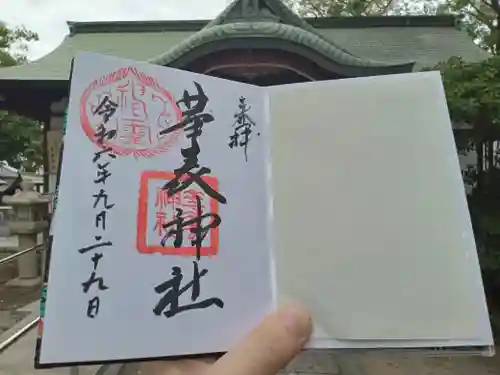 奉拝
華表神社
令和六年九月二十九日